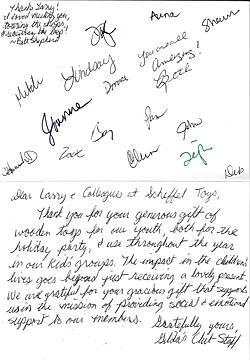 Thanks Larry!
I loved meeting you,
touring the shop,
& the toys!
Anna
Shawn
Lindsay
You are all
Amazing!
Donna
Yvonne
Zack
Pam
John
Deb
Dear Larry & Colleagues at Scheffel Toys,
Thank you for your generous gift of
wooden toys for our youth, both for the
holiday party, & use throughout the year
in our kids groups. The impact in the children's
lives goes beyond just receiving a lovely present.
We are grateful for your gracious gift that supports
us in the mission of providing social & emotional
support to our members.
Gratefully yours,
Gilda's Club Staff